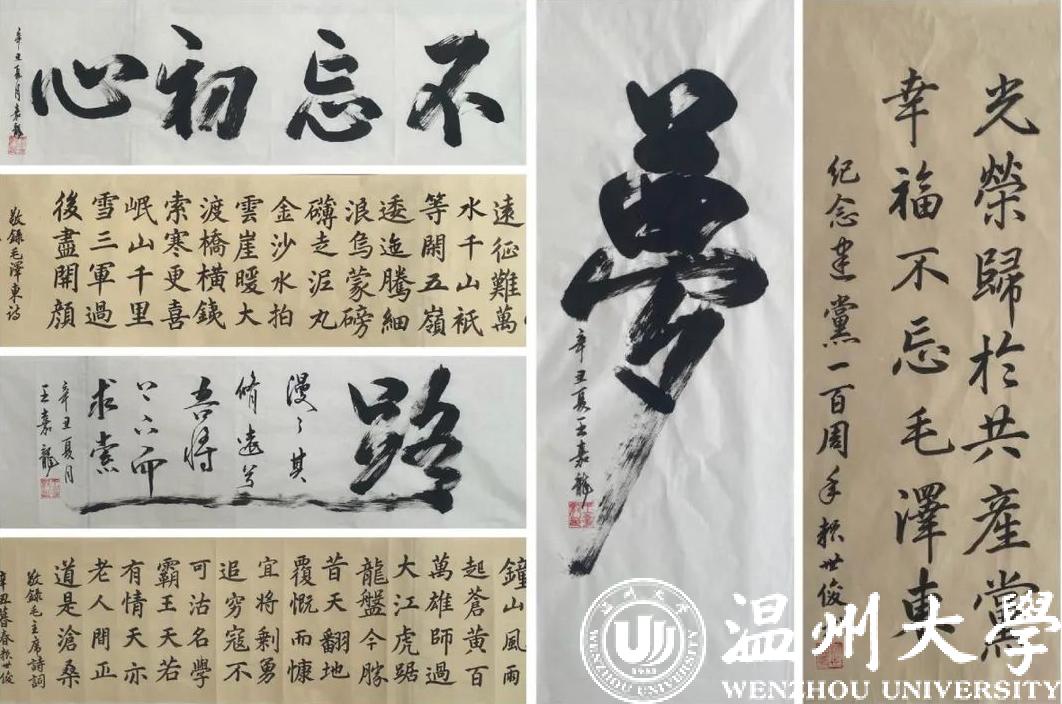 不忘初心
辛丑夏月嘉龍
遠征難萬
水千山祇
等閑五嶺
逶迤騰細
浪烏蒙磅
礡走泥丸
金沙水拍
雲崖暖大
渡橋橫銕
索寒更喜
岷山千里
雪三軍過
後盡開顔
敬錄毛澤東詩
路
漫々其
脩遠兮
吾將
上下而
求索
辛丑夏月
王嘉龍
鐘山風雨
起蒼黃百
萬雄師過
大江虎踞
龍盤今勝
昔天翻地
覆慨而慷
宜將剩勇
追窮寇不
可沽名學
霸王天若
有情天亦
老人間正
道是滄桑
敬錄毛主席詩詞
辛丑暮春賴世俊
夢
辛丑夏王嘉龍
光榮歸於共產黨
幸福不忘毛澤東
紀念建黨一百周年賴世俊
温州大學
WENZHOU UNIVERSITY
温州大學
WENZHOU UNIVERSITY
1933